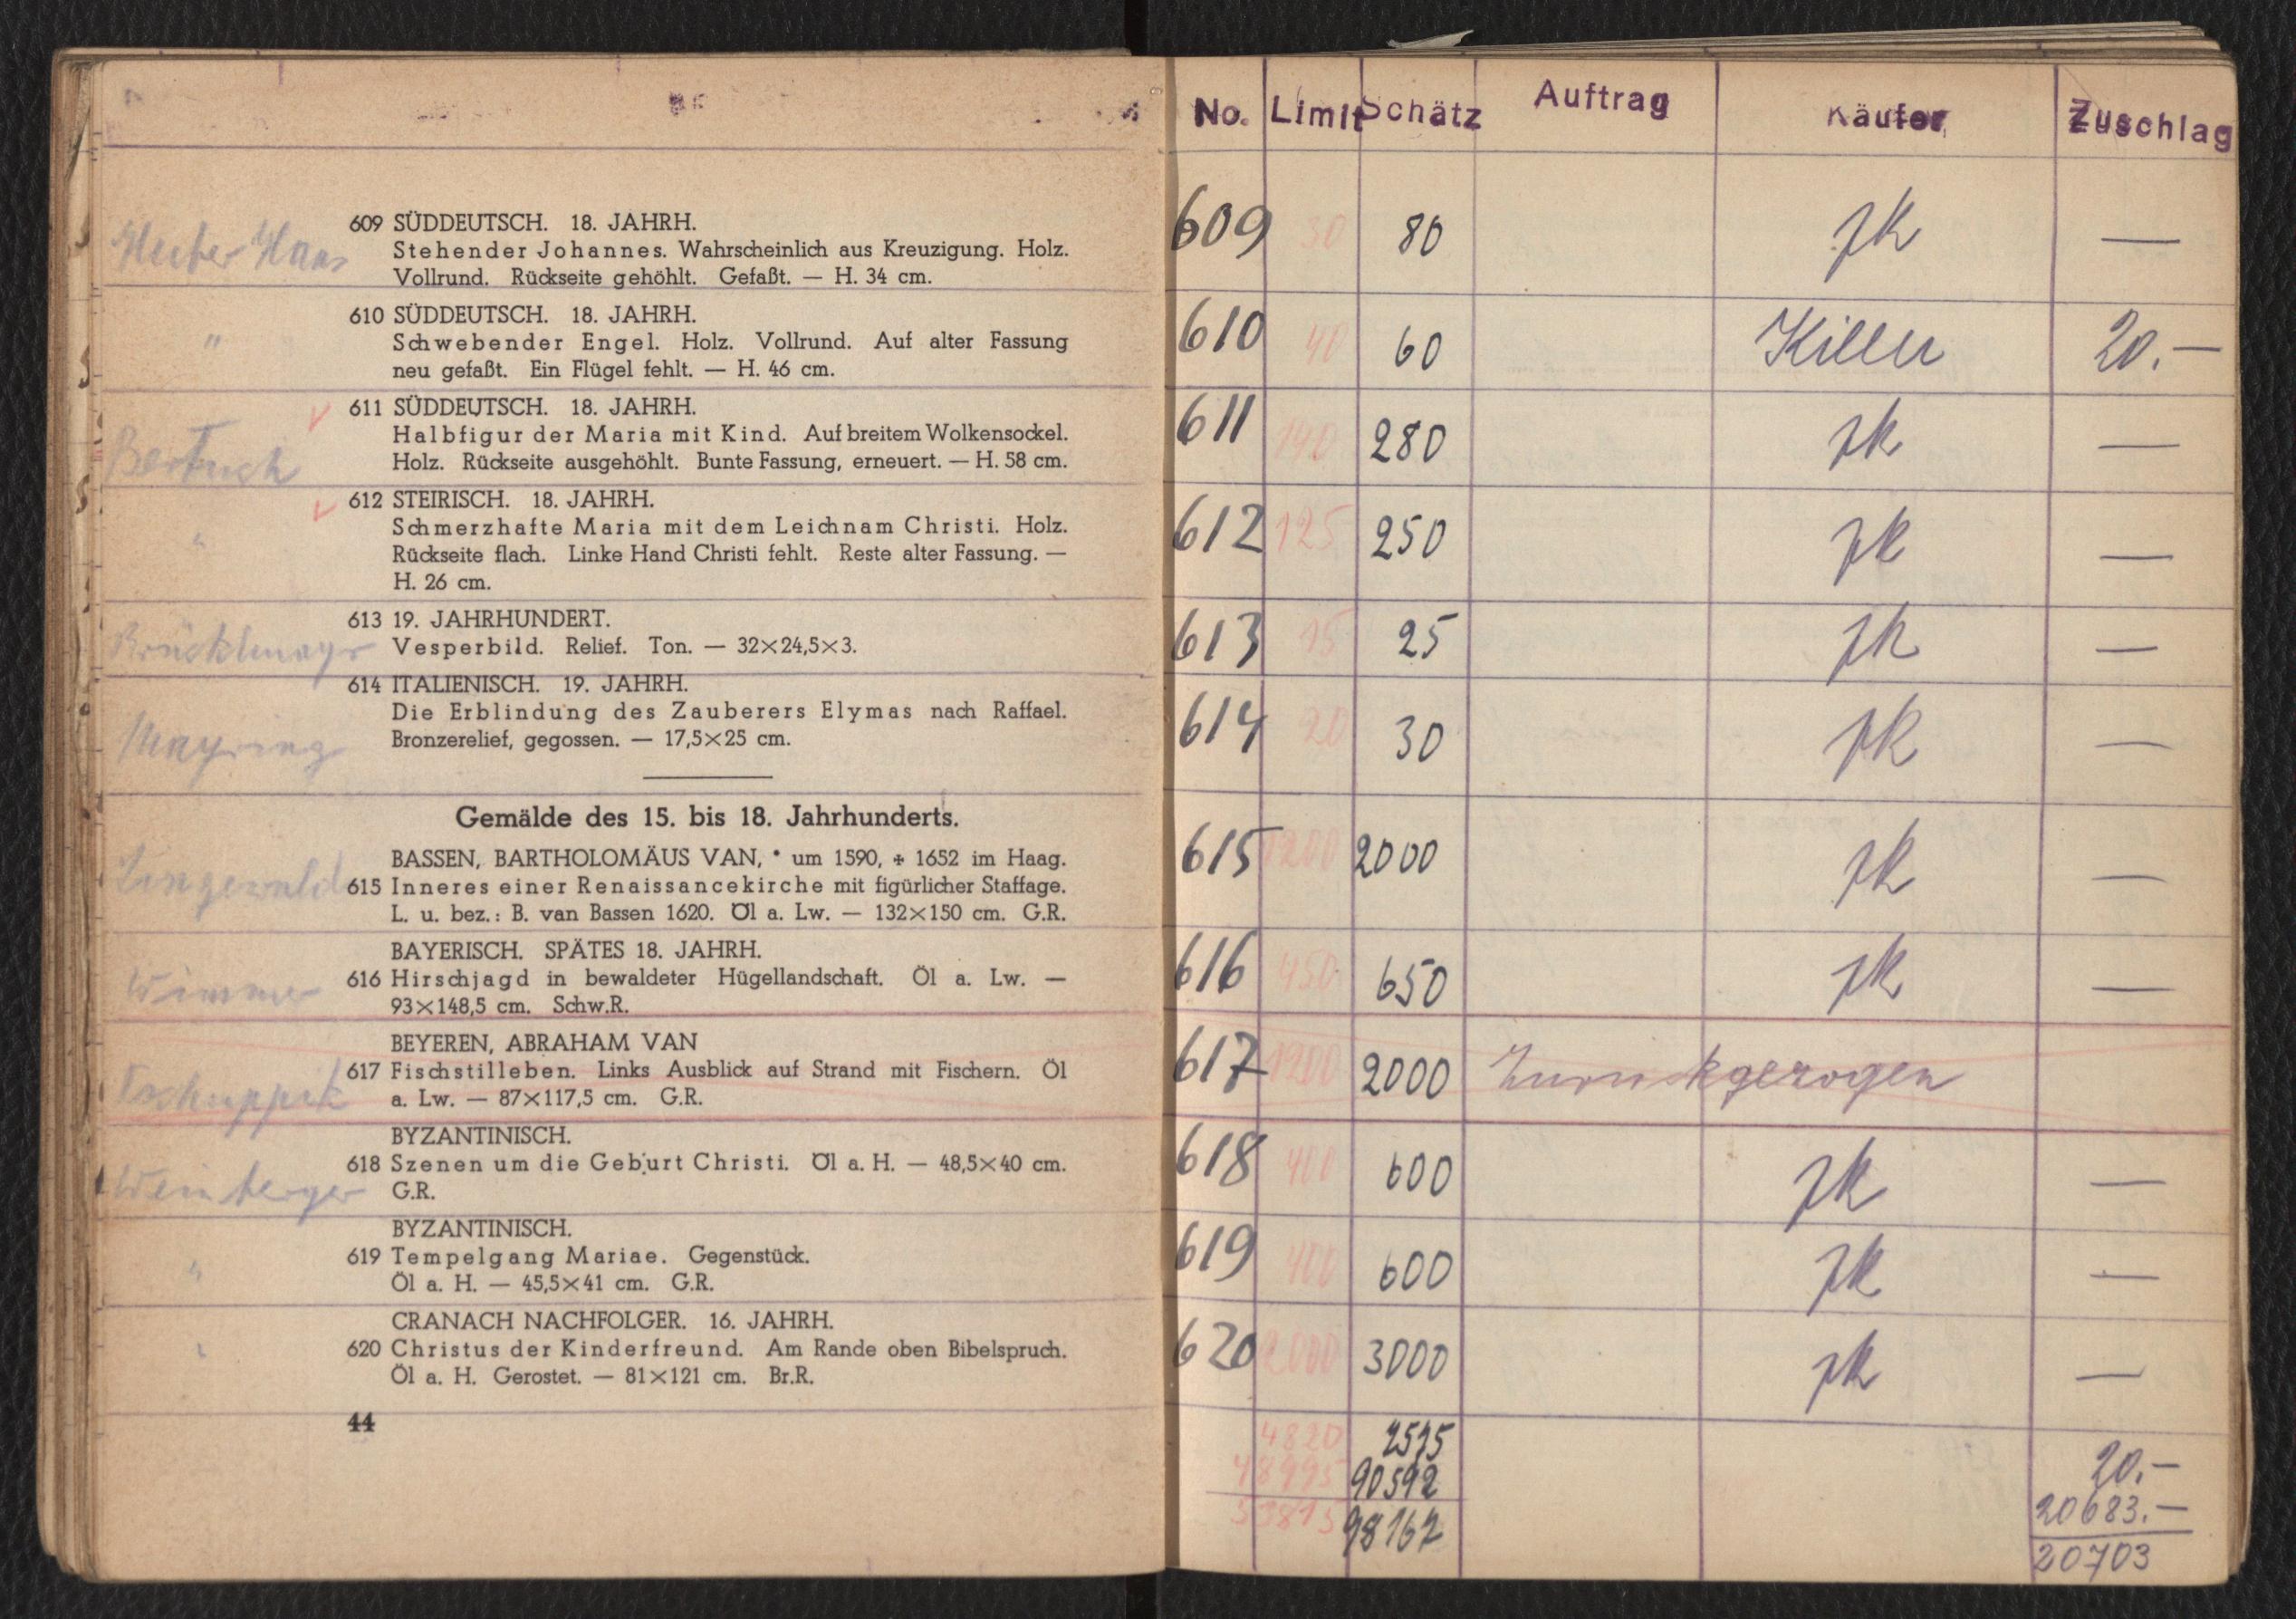 Huber Hans
609 SÜDDEUTSCH. 18. JAHRH.
Stehender Johannes. Wahrscheinlich aus Kreuzigung. Holz.
Vollrund. Rückseite gehöhlt. Gefaßt. — H. 34 cm.
"
610 SÜDDEUTSCH. 18. JAHRH.
Schwebender Engel. Holz. Vollrund. Auf alter Fassung
neu gefaßt. Ein Flügel fehlt. — H. 46 cm.
Bertuch
611 SÜDDEUTSCH. 18. JAHRH.
Halbfigur der Maria mit Kind. Auf breitem Wolkensockel.
Holz. Rückseite ausgehöhlt. Bunte Fassung, erneuert. — H. 58 cm.
"
612 STEIRISCH. 18. JAHRH.
Schmerzhafte Maria mit dem Leichnam Christi. Holz.
Rückseite flach. Linke Hand Christi fehlt. Reste alter Fassung. —
H. 26 cm.
Brücklmayr
613 19. JAHRHUNDERT.
Vesperbild. Relief. Ton. — 32×24,5×3.
Mayring
614 ITALIENISCH. 19. JAHRH.
Die Erblindung des Zauberers Elymas nach Raffael.
Bronzerelief, gegossen. — 17,5×25 cm.
Gemälde des 15. bis 18. Jahrhunderts.
BASSEN, BARTHOLOMÄUS VAN, * um 1590, + 1652 im Haag.
615 Inneres einer Renaissancekirche mit figürlicher Staffage.
L. u. bez.: B. van Bassen 1620. Öl a. Lw. — 132×150 cm. G.R.
Wimmer
BAYERISCH. SPÄTES 18. JAHRH.
616 Hirschjagd in bewaldeter Hügellandschaft. Öl a. Lw. —
93×148,5 cm. Schw.R.
BEYEREN, ABRAHAM VAN
617 Fischstilleben. Links Ausblick auf Strand mit Fischern. Öl
a. Lw. — 87×117,5 cm. G.R.
Weinberger
BYZANTINISCH.
618 Szenen um die Geburt Christi. Öl a. H. — 48,5×40 cm.
G.R.
"
BYZANTINISCH.
619 Tempelgang Mariae. Gegenstück.
Öl a. H. — 45,5×41 cm. G.R.
"
CRANACH NACHFOLGER. 16. JAHRH.
620 Christus der Kinderfreund. Am Rande oben Bibelspruch.
Öl a. H. Gerostet. — 81×121 cm. Br.R.
44
No. Limit Schätz Auftrag Käufer Zuschlag
609 30 80 zk —
610 40 60 Killer 20.—
611 140 280 zk —
612 125 250 zk —
613 15 25 zk —
614 20 30 zk —
615 1200 2000 zk —
616 450 650 zk —
617 1200 2000 Zurückgezogen
618 400 600 zk —
619 400 600 zk —
620 2000 3000 zk —
4820 20.—
48995 90592 20683.—
53815 98167 20703